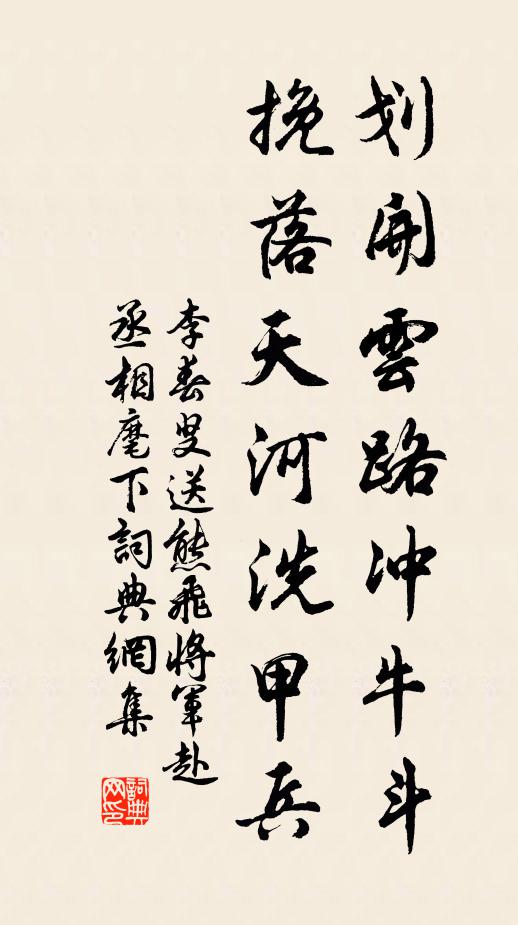 划開雲路冲牛斗
挽落天河洗甲兵
李春叟送熊飛將軍赴
丞相麾下詞典網集
詞典網印